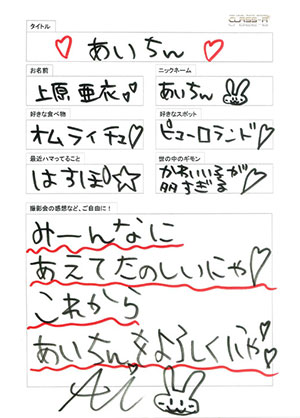 CLASS-A
タイトル
♡ あいちん ♡
お名前
上原亜衣♪
ニックネーム
あいちん
好きな食べ物
オムライチュ♡
好きなスポット
ピューロランド♡
最近ハマってること
はすほ!☆
世の中のギモン
かわいい子が
多すぎる
撮影会の感想など、ご自由に！
みーんなに
あえてたのしいにゃ♡
これから
あいちんをよろしくにゃ♡